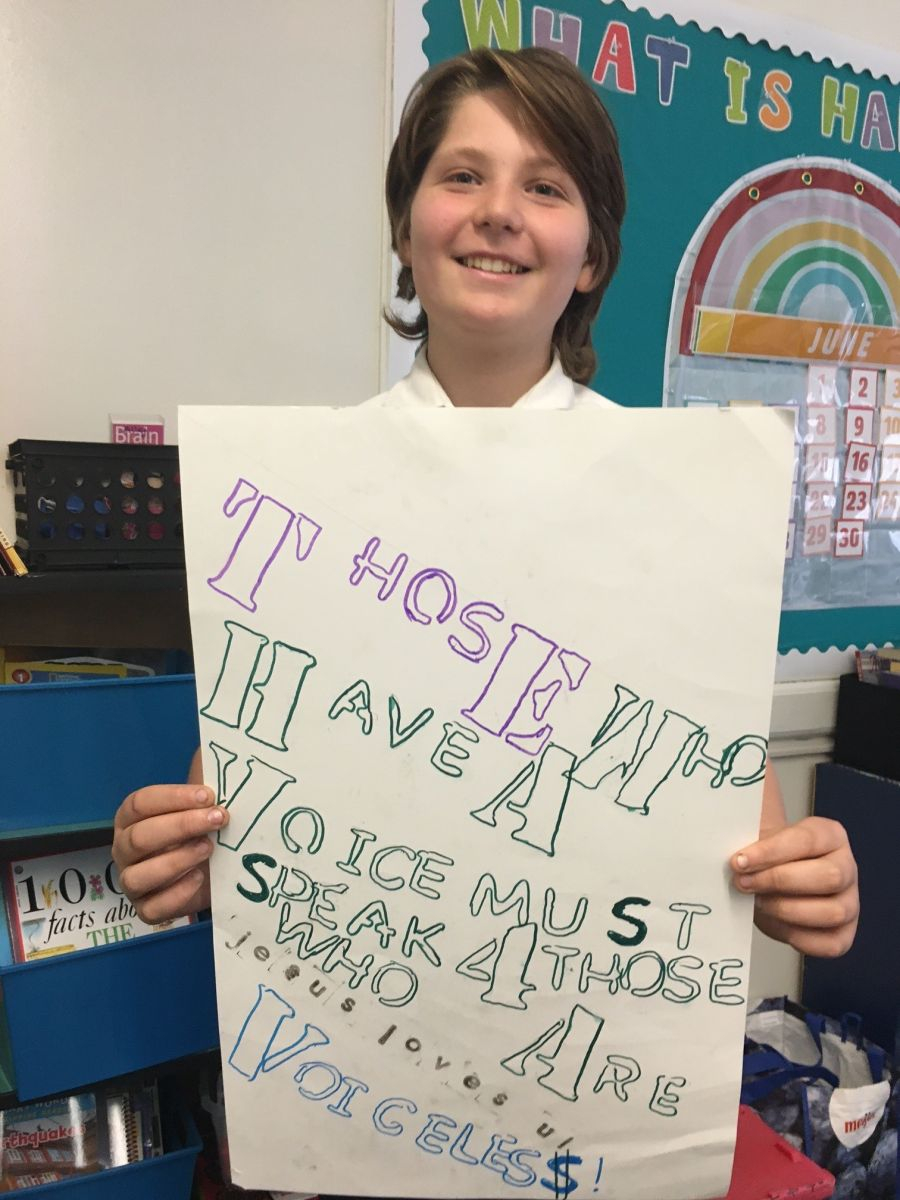 WHAT IS HA
JUNE
1 2 3
8 9 10
15 16
22 23 24
29 30
Brain
THOSE WHO
HAVE A
VOICE MUST
SPEAK 4 THOSE
WHO ARE
jesus loves u!
VOICELESS!
facts
THE